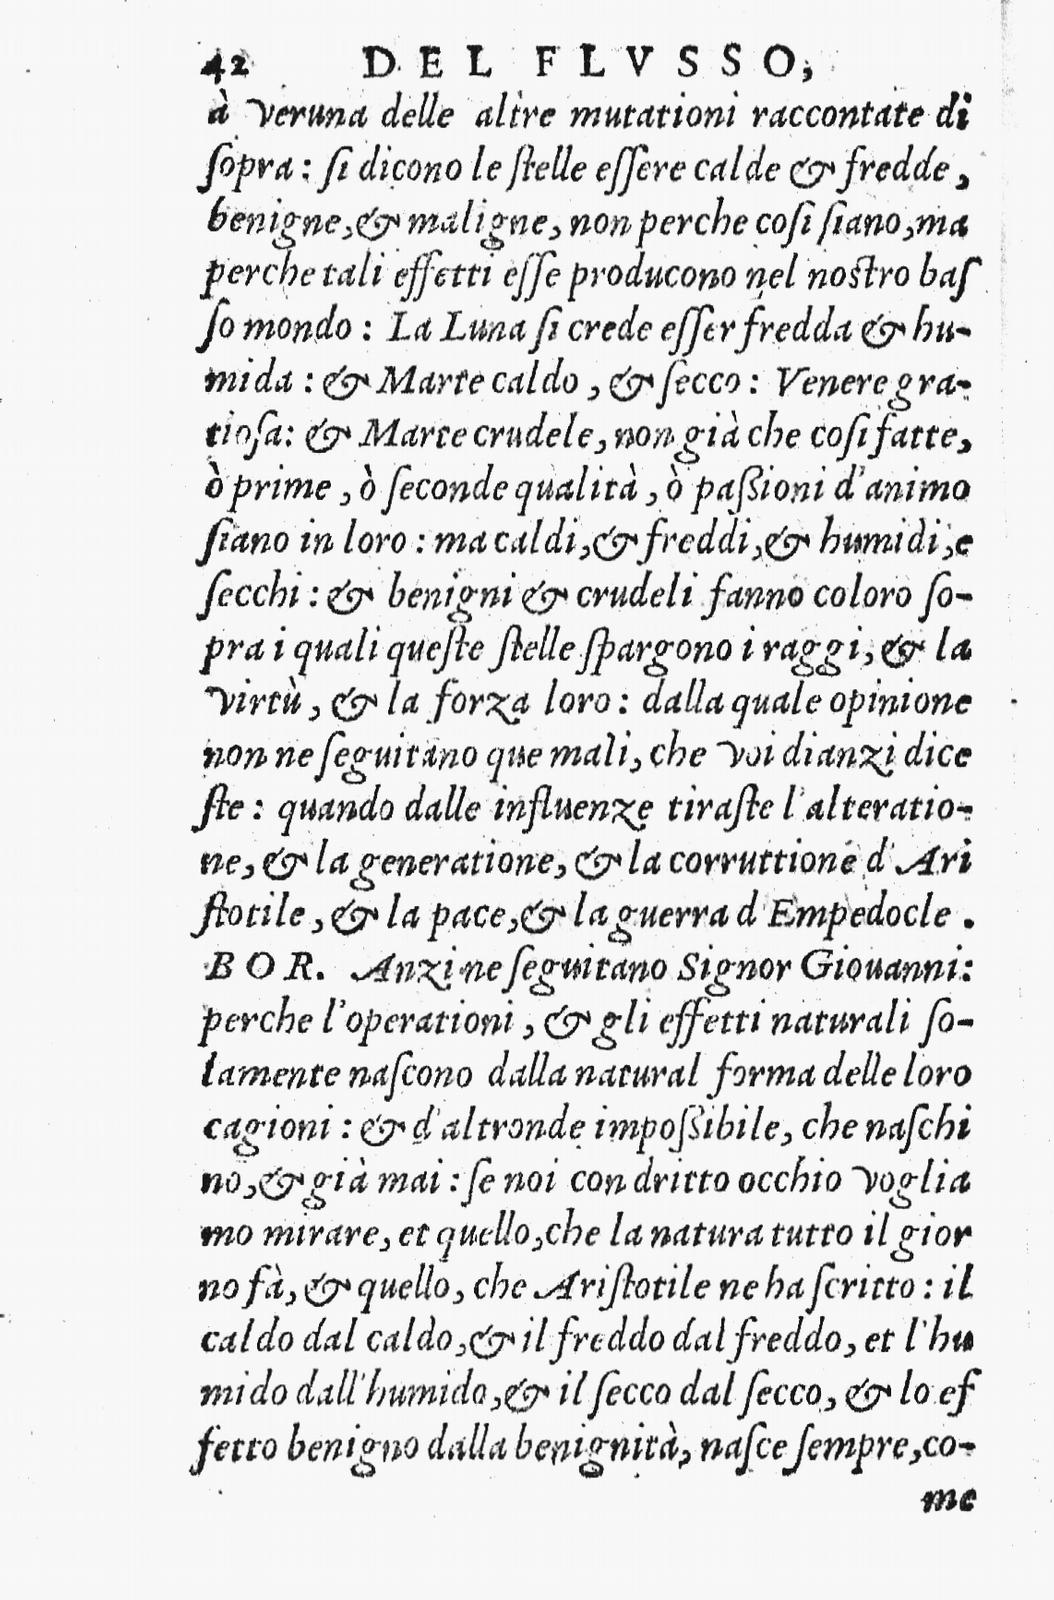 42 DEL FLVSSO,
à veruna delle altre mutationi raccontate di
ſopra: ſi dicono le ſtelle eſſere calde & fredde,
benigne, & maligne, non perche coſi ſiano, ma
perche tali effetti eſſe producono nel noſtro baſ
ſo mondo: La Luna ſi crede eſſer fredda & hu-
mida: & Marte caldo, & ſecco: Venere gra-
tioſa: & Marte crudele, non già che coſi fatte,
ò prime, ò ſeconde qualità, ò paßioni d'animo
ſiano in loro: ma caldi, & freddi, & humidi, e
ſecchi: & benigni & crudeli fanno coloro ſo-
pra i quali queſte ſtelle ſpargono i raggi, & la
virtù, & la forza loro: dalla quale opinione
non ne ſeguitano que mali, che voi dianzi dice
ſte: quando dalle influenze tiraſte l'alteratio-
ne, & la generatione, & la corruttione d'Ari
ſtotile, & la pace, & la guerra d'Empedocle.
BOR. Anzi ne ſeguitano Signor Giouanni:
perche l'operationi, & gli effetti naturali ſo-
lamente naſcono dalla natural forma delle loro
cagioni: & d'altronde impoßibile, che naſchi
no, & già mai: ſe noi con dritto occhio voglia
mo mirare, et quello, che la natura tutto il gior
no fà, & quello, che Ariſtotile ne ha ſcritto: il
caldo dal caldo, & il freddo dal freddo, et l'hu
mido dall'humido, & il ſecco dal ſecco, & lo ef
fetto benigno dalla benignità, naſce ſempre, co-
me